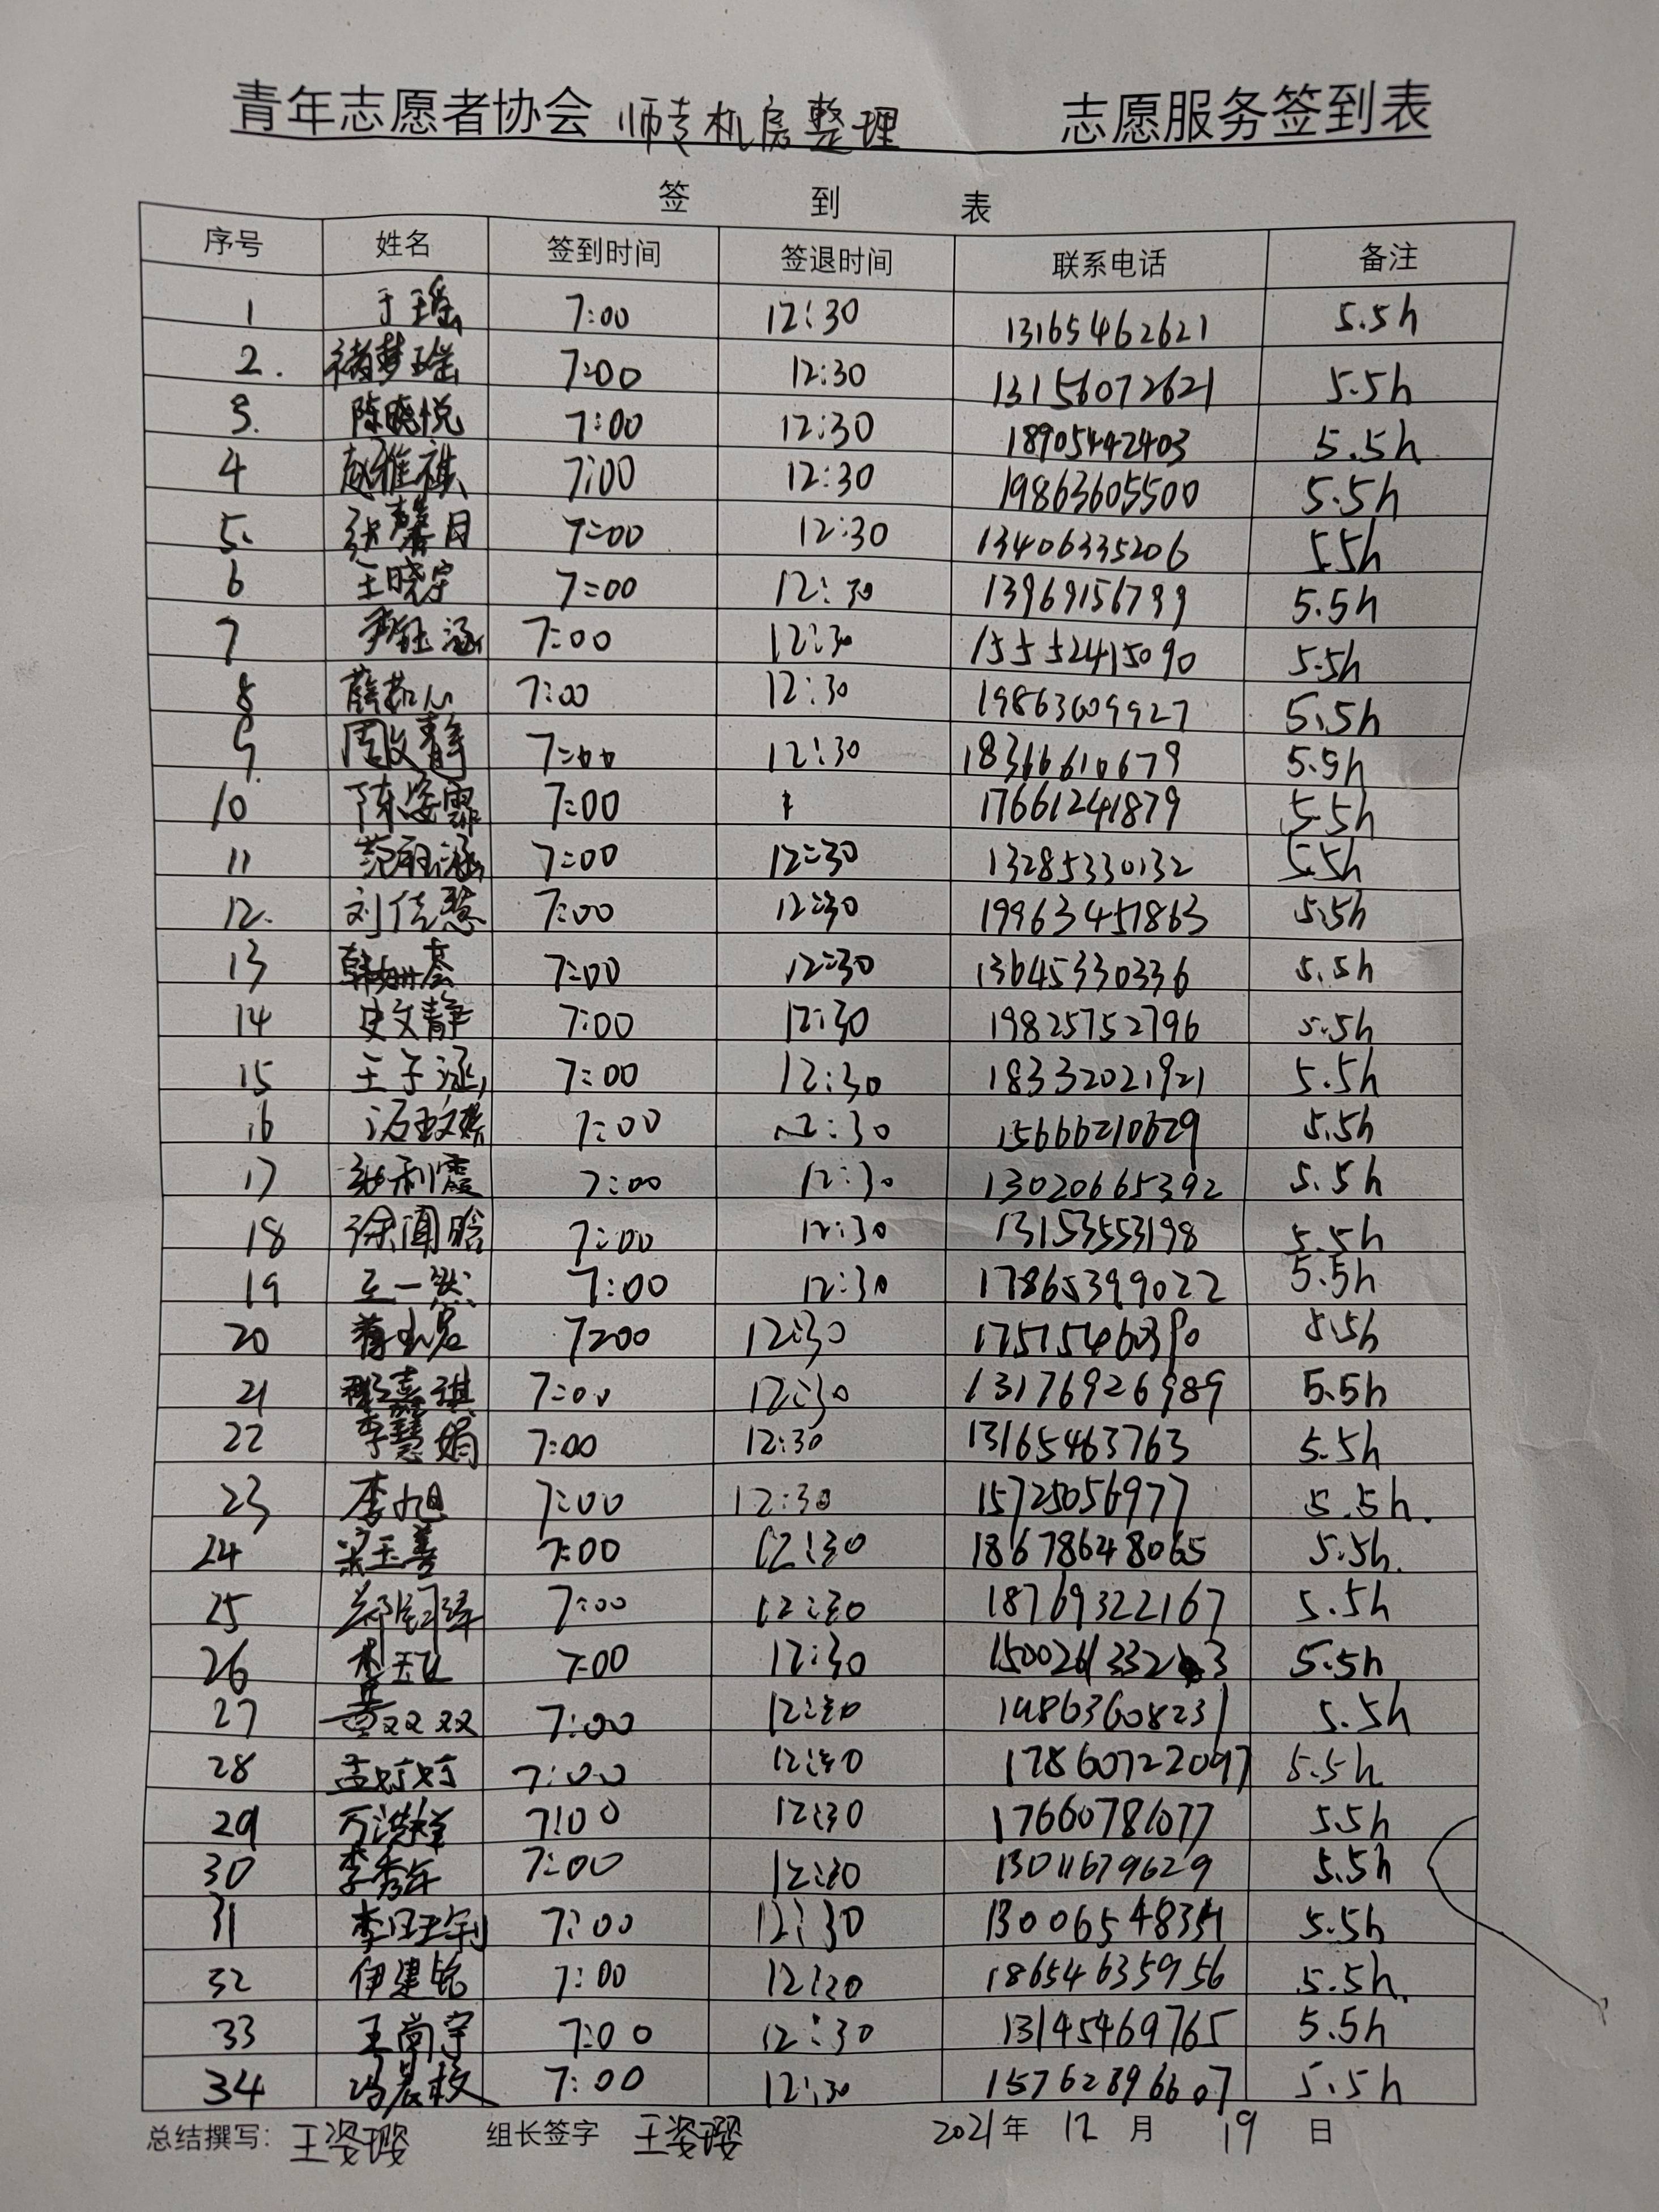 青年志愿者协会 师专机房整理 志愿服务签到表
签 到 表
序号 姓名 签到时间 签退时间 联系电话 备注
1 于瑶 7:00 12:30 13165462621 5.5h
2. 褚梦瑶 7:00 12:30 13156072621 5.5h
3. 陈晓悦 7:00 12:30 18905442403 5.5h
4 赵雅祺 7:00 12:30 19863605500 5.5h
5. 张馨月 7:00 12:30 13406335206 5.5h
6 王晓宇 7:00 12:30 13969156799 5.5h
7 尹钰涵 7:00 12:30 15552415090 5.5h
8 薛茹心 7:00 12:30 19863609927 5.5h
9. 周文静 7:00 12:30 18366610679 5.5h
10 陈姿霏 7:00 17661241879 5.5h
11 范钰涵 7:00 12:30 13285330132 5.5h
12. 刘佳慧 7:00 12:30 19963451863 5.5h
13 韩姗蓉 7:00 12:30 13645330336 5.5h
14 史文静 7:00 12:30 19825752796 5.5h
15 王子涵 7:00 12:30 18332021921 5.5h
16 7:00 12:30 15666210629 5.5h
17 张利霞 7:00 12:30 13020665392 5.5h
18 徐圆晗 7:00 12:30 13153553198 5.5h
19 王一然 7:00 12:30 17865399022 5.5h
20 7:00 12:30 5.5h
21 邢嘉琪 7:00 12:30 13176926989 5.5h
22 李慧娟 7:00 12:30 13165463763 5.5h
23 李旭 7:00 12:30 15725056977 5.5h.
24 梁玉善 7:00 12:30 18678648065 5.5h.
25 7:00 12:30 18769322167 5.5h
26 7:00 12:30 5.5h
27 黄双双 7:00 12:30 19863608231 5.5h
28 孟婷婷 7:00 12:30 17860722097 5.5h
29 万洪祥 7:00 12:30 17660781077 5.5h
30 李秀年 7:00 12:30 13011679629 5.5h
31 7:00 12:30 5.5h
32 伊建铭 7:00 12:30 18654635956 5.5h.
33 王尚宇 7:00 12:30 13145469765 5.5h
34 冯晨枚 7:00 12:30 15762896607 5.5h
总结撰写: 王姿璎 组长签字 王姿璎 2021年 12 月 19 日